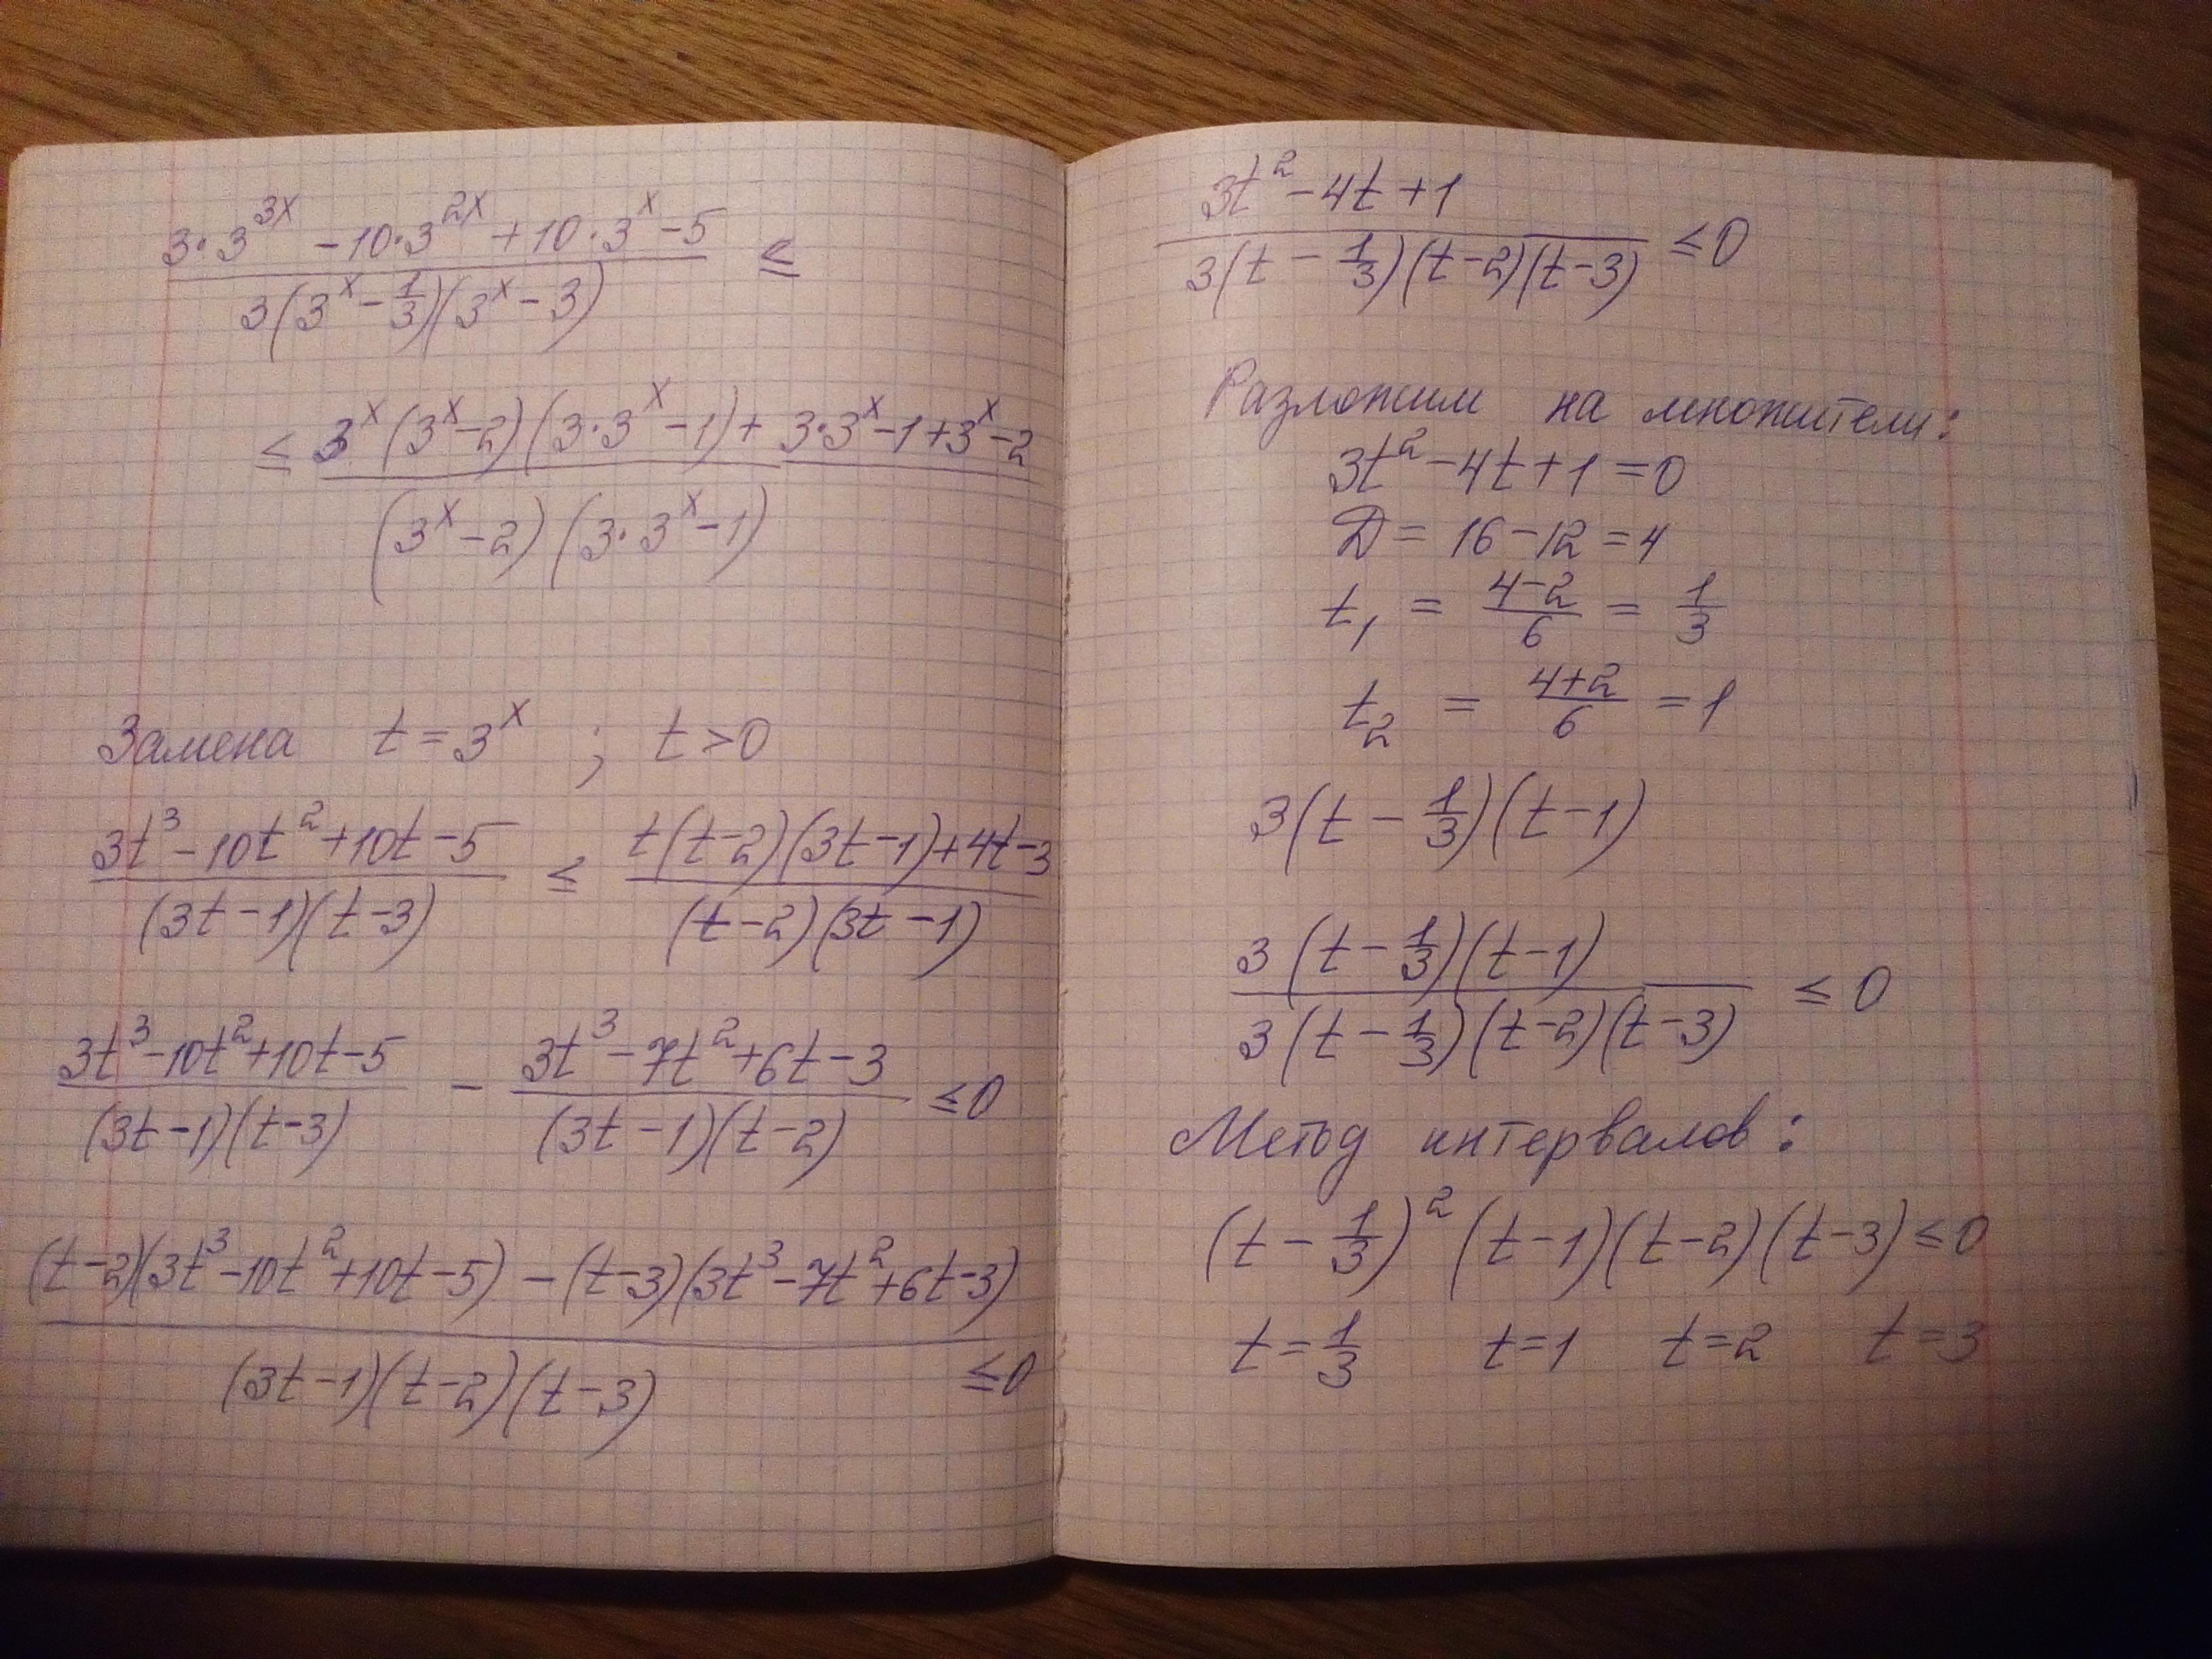 3·3^{3x} - 10·3^{2x} + 10·3^x - 5 / 3(3^x - 1/3)(3^x - 3) ≤
≤ 3^x(3^x - 2)(3·3^x - 1) + 3·3^x - 1 + 3^x - 2 / (3^x - 2)(3·3^x - 1)
Замена t = 3^x ; t > 0
3t^3 - 10t^2 + 10t - 5 / (3t - 1)(t - 3) ≤ t(t - 2)(3t - 1) + 4t - 3 / (t - 2)(3t - 1)
3t^3 - 10t^2 + 10t - 5 / (3t - 1)(t - 3) - 3t^3 - 7t^2 + 6t - 3 / (3t - 1)(t - 2) ≤ 0
(t - 2)(3t^3 - 10t^2 + 10t - 5) - (t - 3)(3t^3 - 7t^2 + 6t - 3) / (3t - 1)(t - 2)(t - 3) ≤ 0
3t^2 - 4t + 1 / 3(t - 1/3)(t - 2)(t - 3) ≤ 0
Разложим на множители:
3t^2 - 4t + 1 = 0
D = 16 - 12 = 4
t_1 = 4 - 2 / 6 = 1/3
t_2 = 4 + 2 / 6 = 1
3(t - 1/3)(t - 1)
3(t - 1/3)(t - 1) / 3(t - 1/3)(t - 2)(t - 3) ≤ 0
Метод интервалов:
(t - 1/3)^2 (t - 1)(t - 2)(t - 3) ≤ 0
t = 1/3 t = 1 t = 2 t = 3